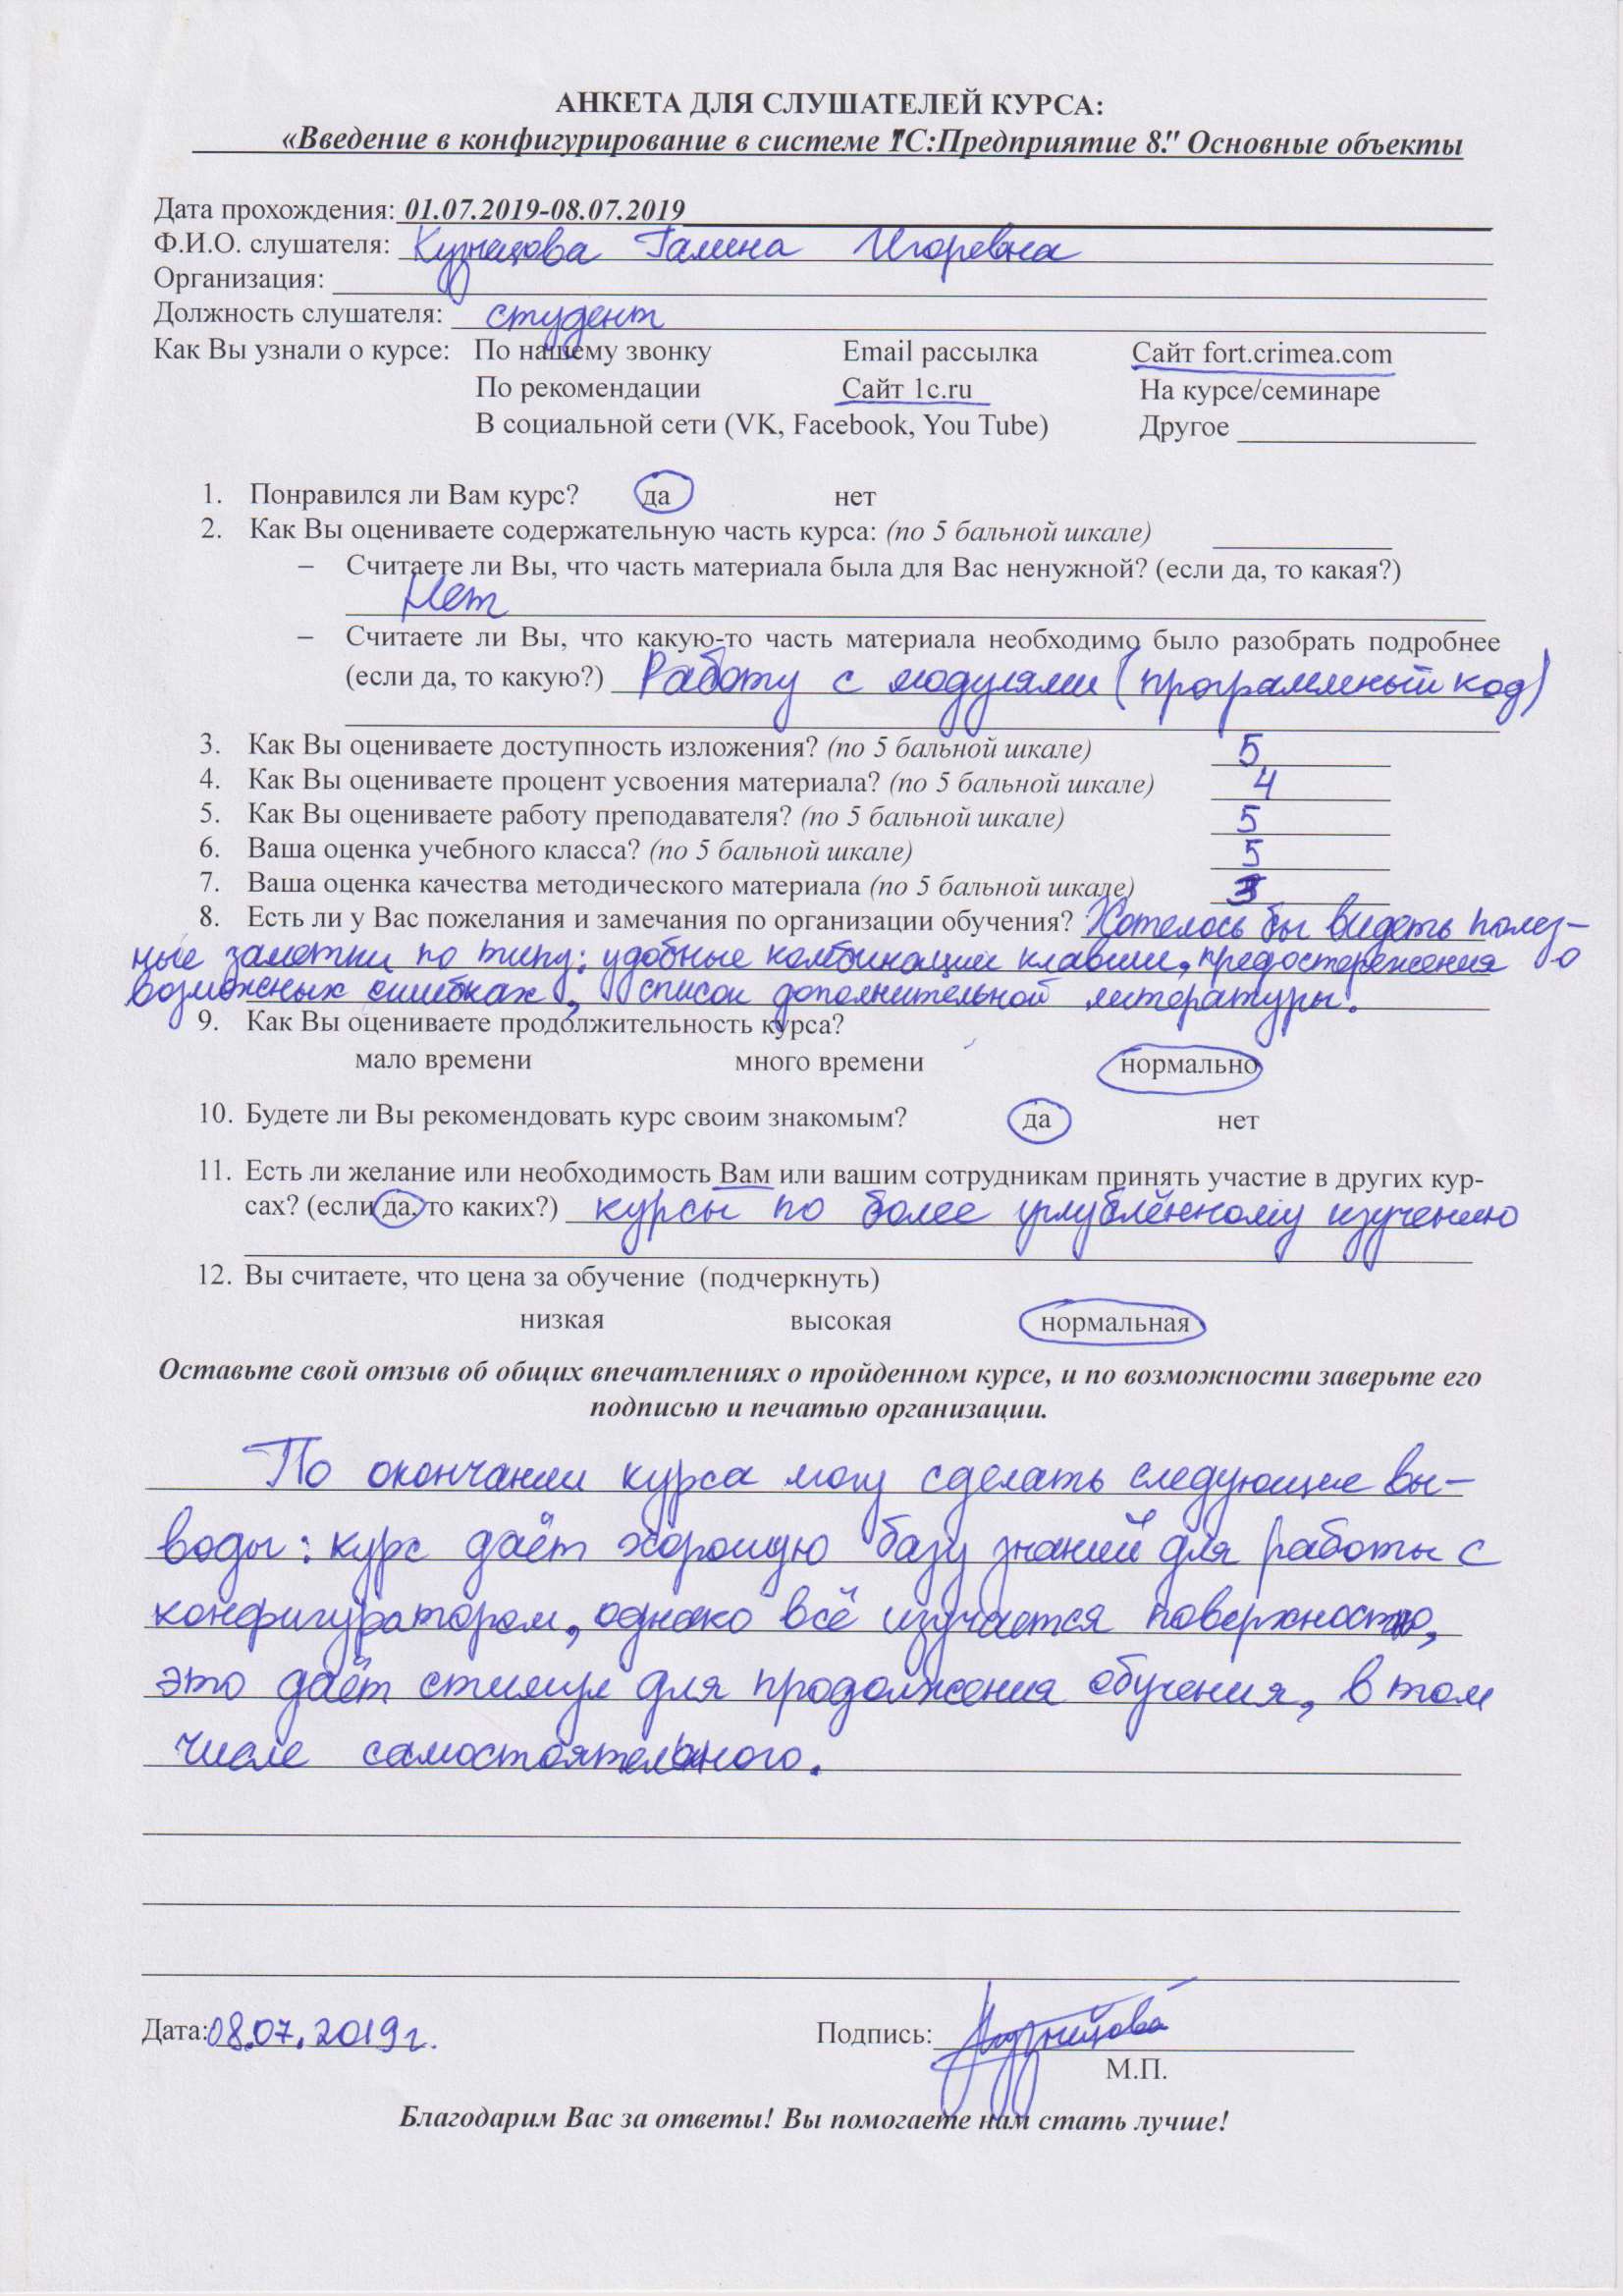 АНКЕТА ДЛЯ СЛУШАТЕЛЕЙ КУРСА:
«Введение в конфигурирование в системе 1С:Предприятие 8." Основные объекты
Дата прохождения: 01.07.2019-08.07.2019
Ф.И.О. слушателя: Кузнецова Галина Игоревна
Организация:
Должность слушателя: студент
Как Вы узнали о курсе: По нашему звонку Email рассылка Сайт fort.crimea.com
По рекомендации Сайт 1с.ru На курсе/семинаре
В социальной сети (VK, Facebook, You Tube) Другое
1. Понравился ли Вам курс? да нет
2. Как Вы оцениваете содержательную часть курса: (по 5 бальной шкале)
– Считаете ли Вы, что часть материала была для Вас ненужной? (если да, то какая?)
Нет
– Считаете ли Вы, что какую-то часть материала необходимо было разобрать подробнее
(если да, то какую?) Работу с модулями (программный код)
3. Как Вы оцениваете доступность изложения? (по 5 бальной шкале) 5
4. Как Вы оцениваете процент усвоения материала? (по 5 бальной шкале) 4
5. Как Вы оцениваете работу преподавателя? (по 5 бальной шкале) 5
6. Ваша оценка учебного класса? (по 5 бальной шкале) 5
7. Ваша оценка качества методического материала (по 5 бальной шкале)
8. Есть ли у Вас пожелания и замечания по организации обучения? Хотелось бы видеть полез-
ные заметки по типу: удобные комбинации клавиш, предостережения о
возможных ошибках, список дополнительной литературы.
9. Как Вы оцениваете продолжительность курса?
мало времени много времени нормально
10. Будете ли Вы рекомендовать курс своим знакомым? да нет
11. Есть ли желание или необходимость Вам или вашим сотрудникам принять участие в других кур-
сах? (если да, то каких?) курсы по более углублённому изучению
12. Вы считаете, что цена за обучение (подчеркнуть)
низкая высокая нормальная
Оставьте свой отзыв об общих впечатлениях о пройденном курсе, и по возможности заверьте его
подписью и печатью организации.
По окончании курса могу сделать следующие вы-
воды: курс даёт хорошую базу знаний для работы с
конфигуратором, однако всё изучается поверхностно,
это даёт стимул для продолжения обучения, в том
числе самостоятельного.
Дата: 08.07.2019г. Подпись: Кузнецова
М.П.
Благодарим Вас за ответы! Вы помогаете нам стать лучше!